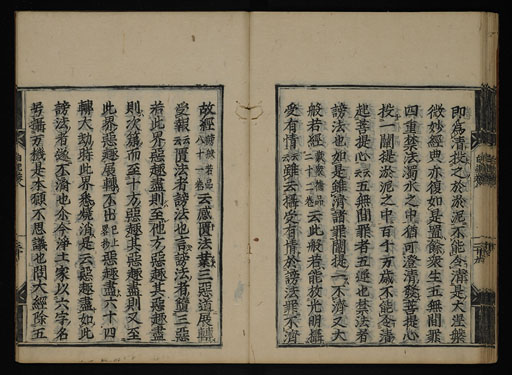 即爲清投之於淤泥不能令清是大涅槃
微妙經典亦復如是置餘衆生五無間罪
四重禁法濁水之中猶可澄清發菩提心
投一闡提淤泥之中百千万歳不能令清
起菩提心云云五無間罪者五逆也禁法者
謗法也如是雖濟諸罪闡提一不濟又大
般若經云此般若能放光明攝
受有情云云雖云攝受有情於謗法罪不濟
故經云感匱法業三惡道展轉
受報云云匱法者謗法也言謗法者墮三惡
若此界惡趣盡則至他方惡趣其惡趣盡
則次第而至十方惡趣其惡趣盡則又至
此界惡趣展轉不出已上惡趣盡六十四
轉大劫時此界悉燒消是云惡趣盡如此
謗法者極不濟也尒今淨土家以六字名
号攝万機是本願不思議也問大經除五